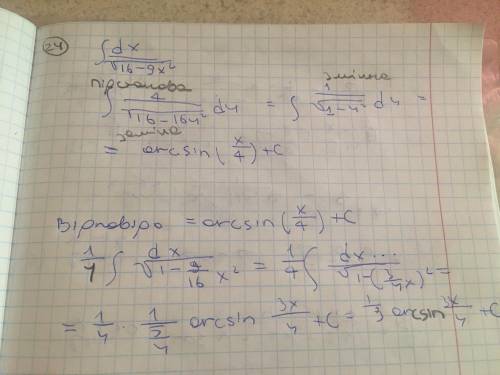 24
∫ dx / √16-9x²
підстановка
заміна
∫ 4 / √16-16u² du = ∫ 1 / √1-u² du =
заміна
= arcsin(x/4)+C
= arcsin(x/4)+C
1/4 ∫ dx / √1-9/16 x² = 1/4 ∫ dx... / √1-(3/4 x)² =
= 1/4 · 1 / 3/4 arcsin 3x/4 +C = 1/3 arcsin 3x/4 +C